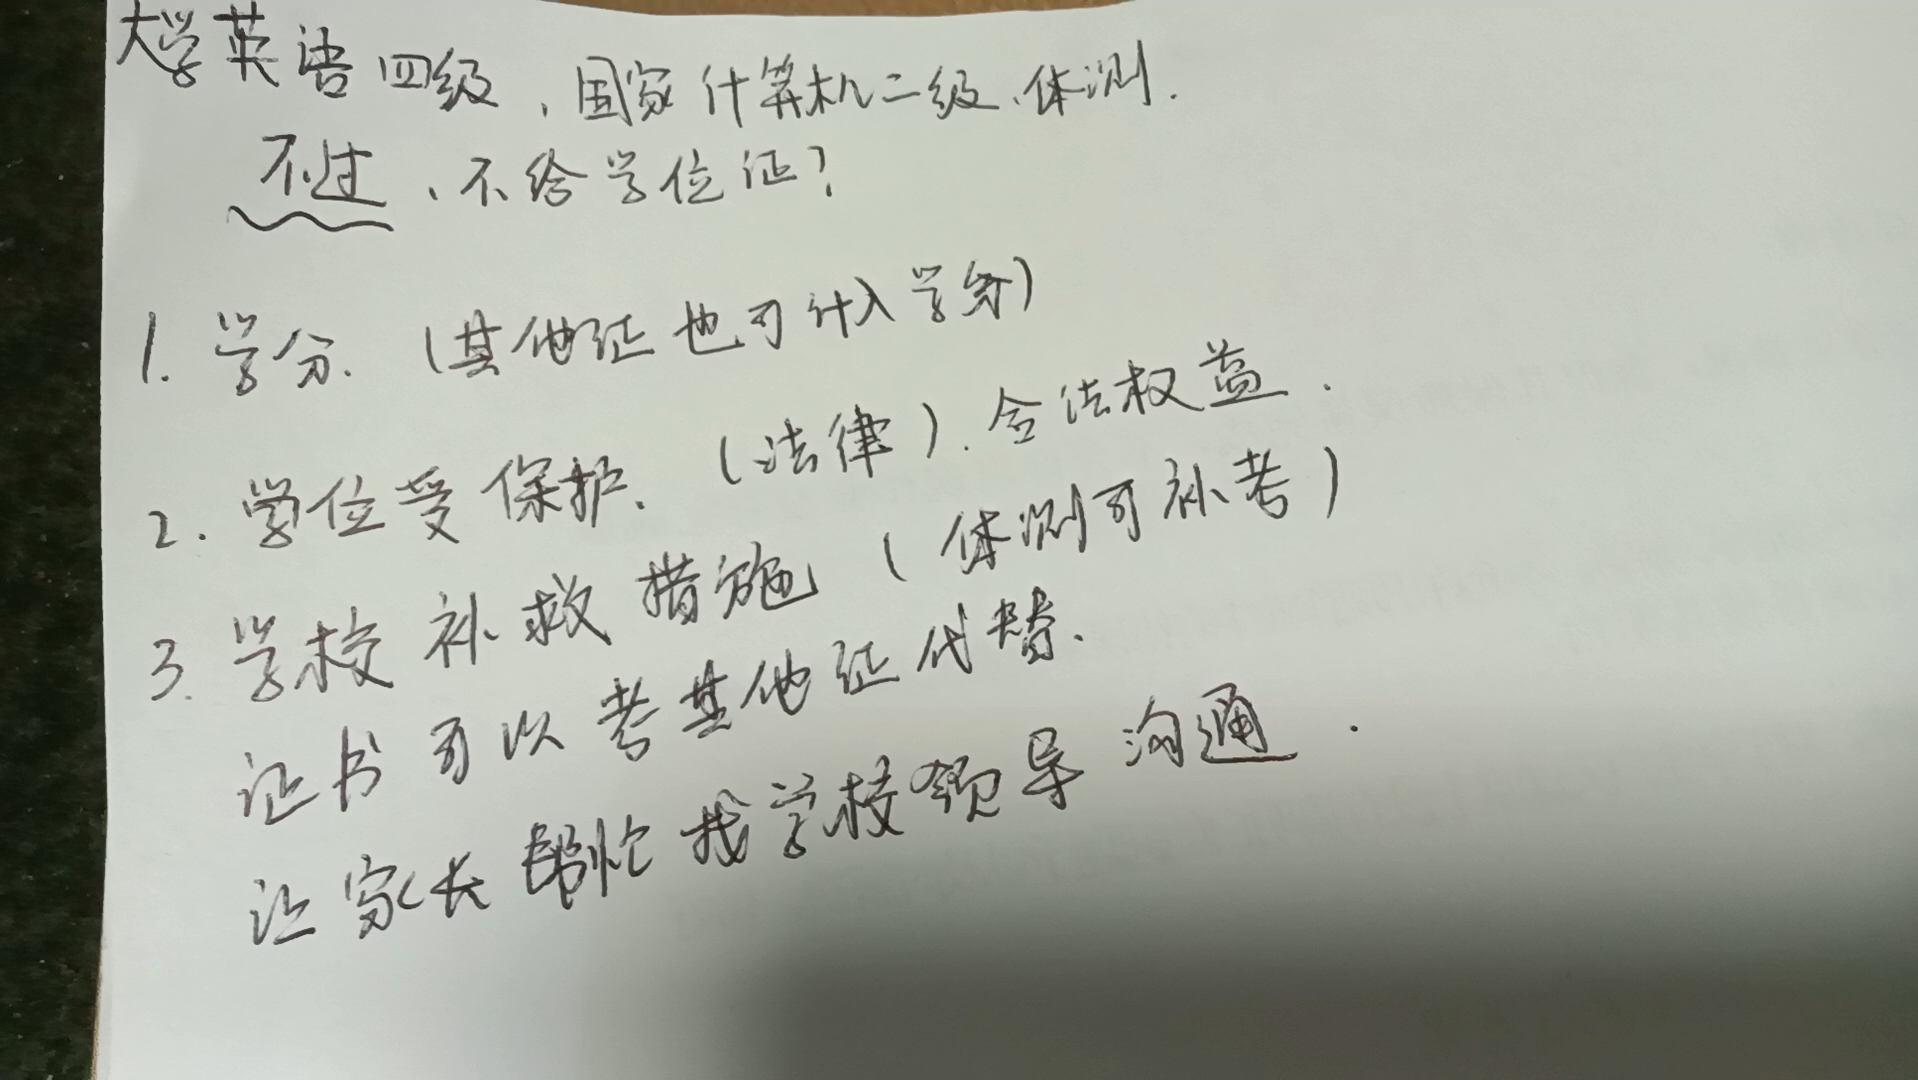 大学英语四级、国家计算机二级、体测.
不过、不给学位证?
1. 学分. (其他证也可计入学分)
2. 学位受保护. (法律). 合法权益.
3. 学校补救措施 (体测可补考)
证书可以考其他证代替.
让家长帮忙找学校领导沟通.